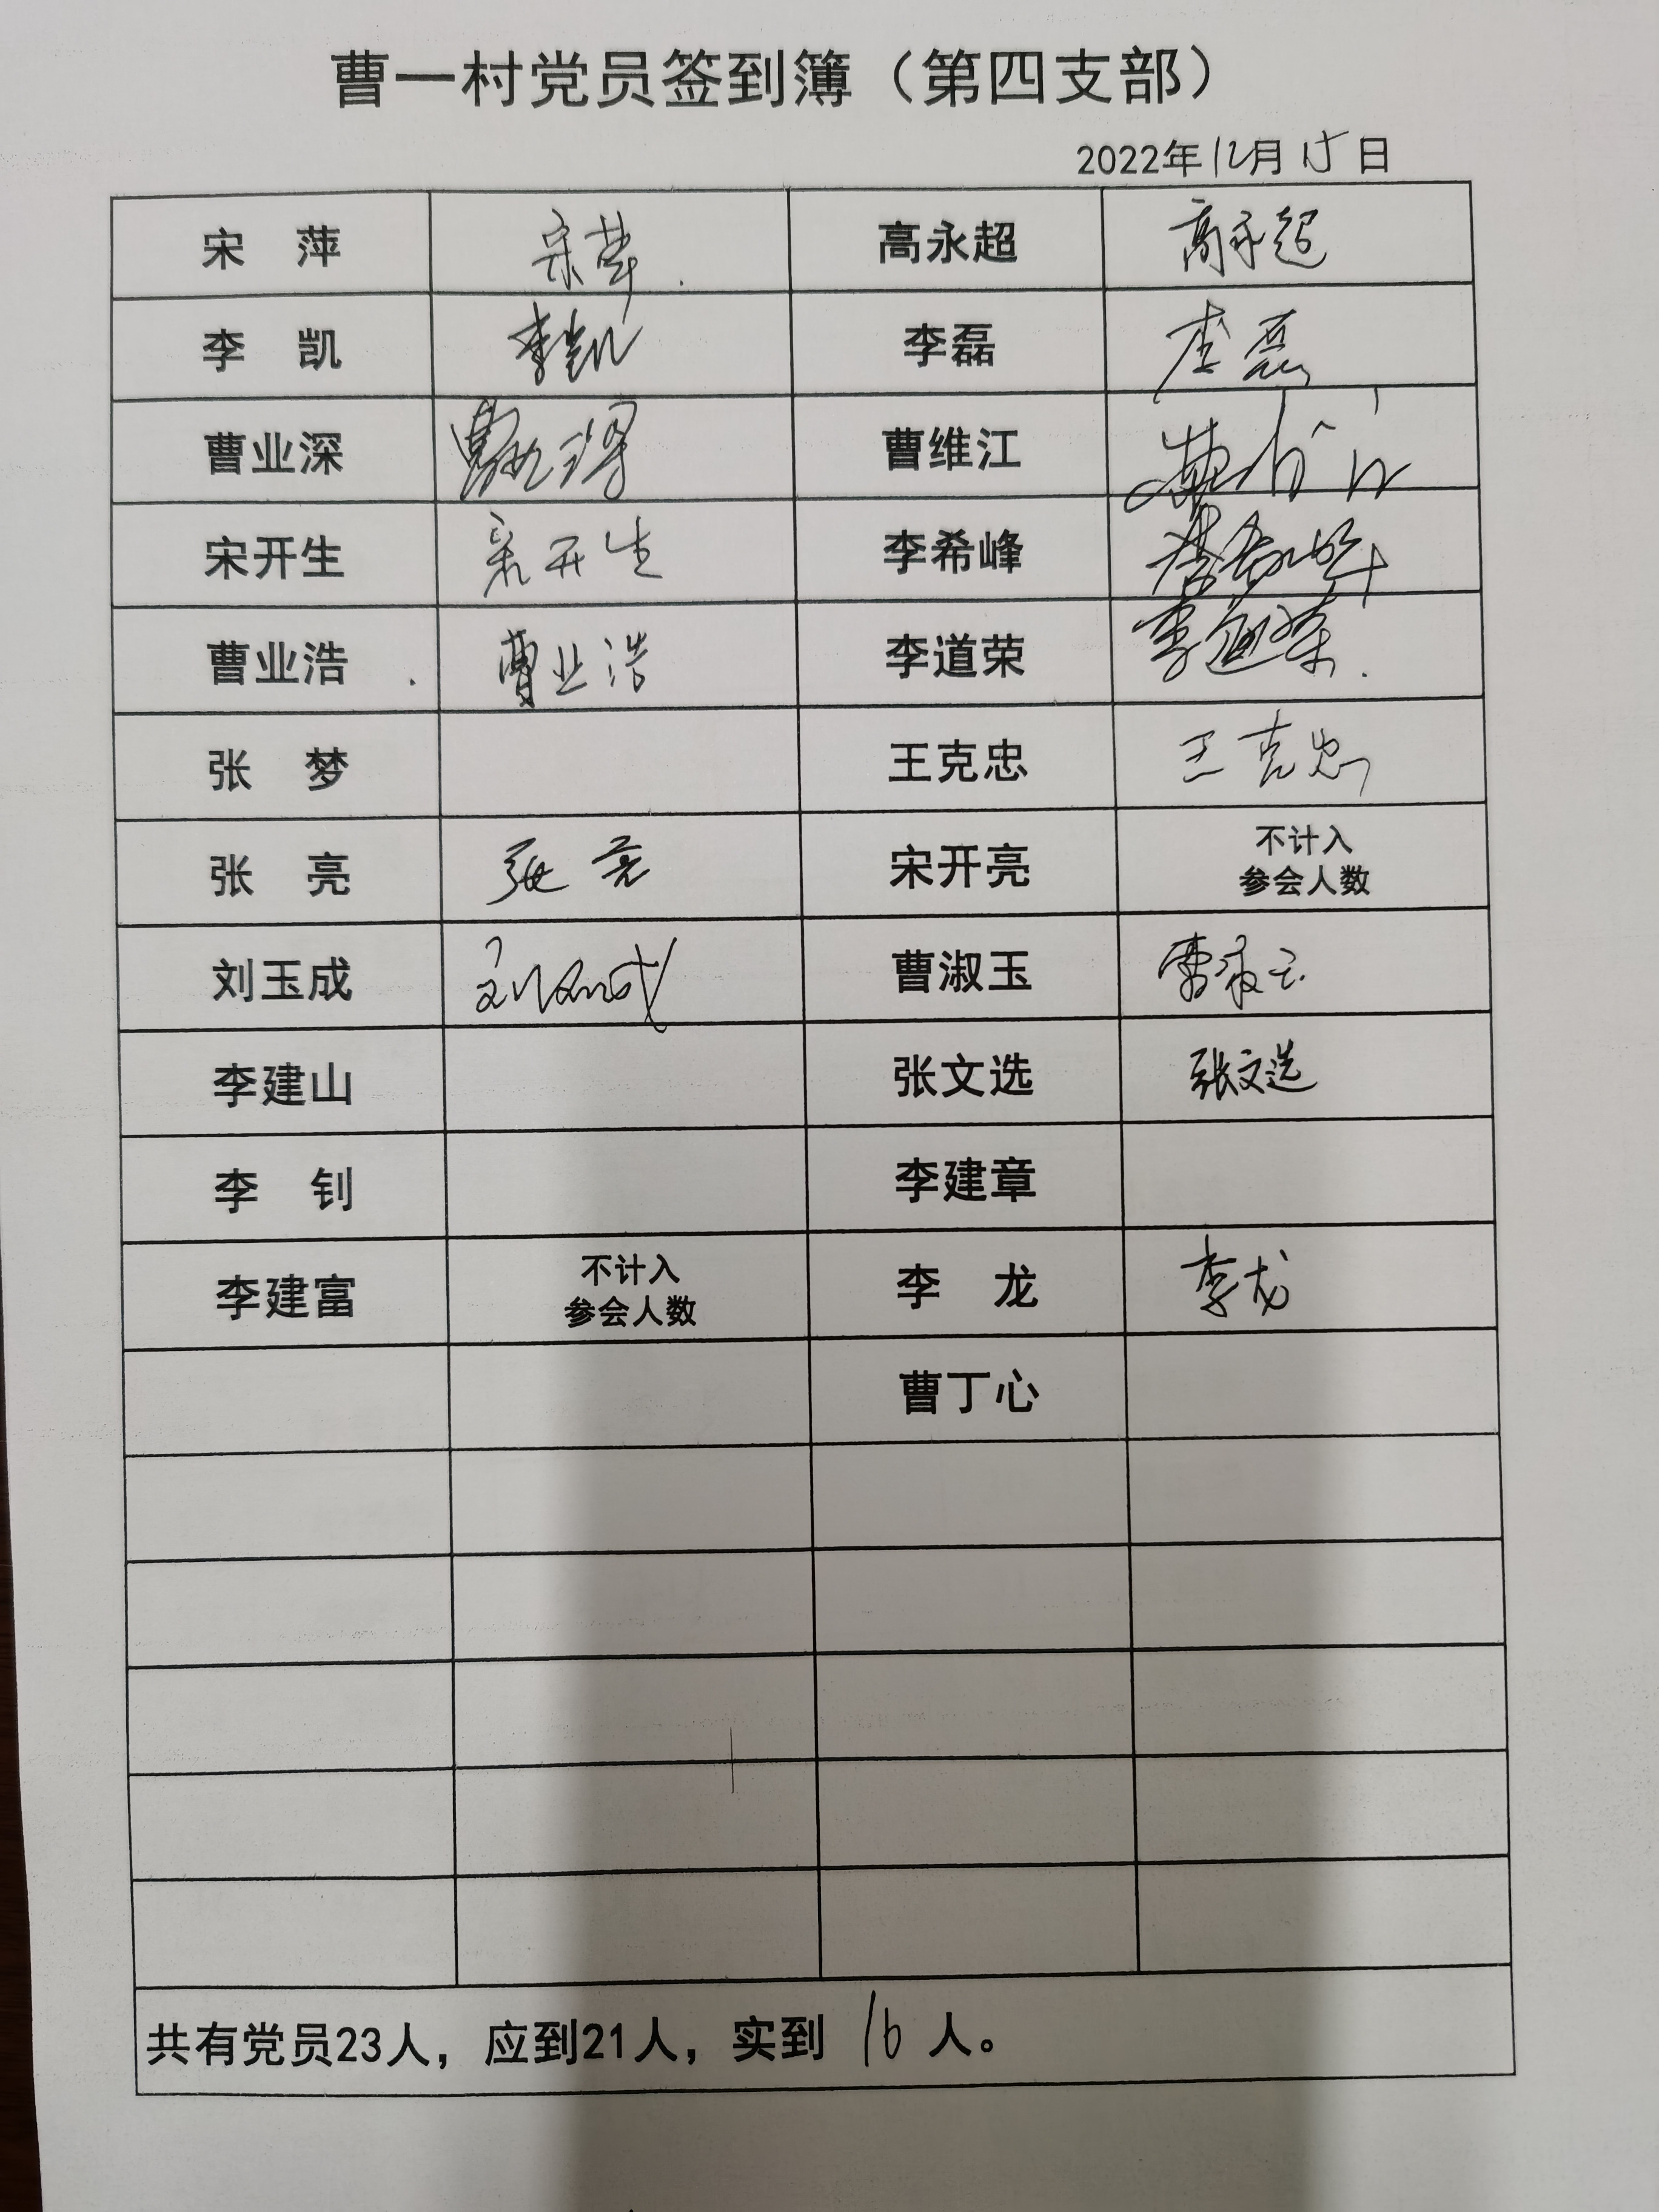 曹一村党员签到簿（第四支部）
2022年12月15日
宋 萍 宋萍 高永超 高永超
李 凯 李凯 李磊 李磊
曹业深 曹业深 曹维江
宋开生 宋开生 李希峰 李希峰
曹业浩 曹业浩 李道荣 李道荣
张 梦 王克忠 王克忠
张 亮 张亮 宋开亮 不计入
参会人数
刘玉成 刘玉成 曹淑玉 曹淑玉
李建山 张文选 张文选
李 钊 李建章
李建富 不计入
参会人数 李 龙 李龙
曹丁心
共有党员23人，应到21人，实到 16 人。